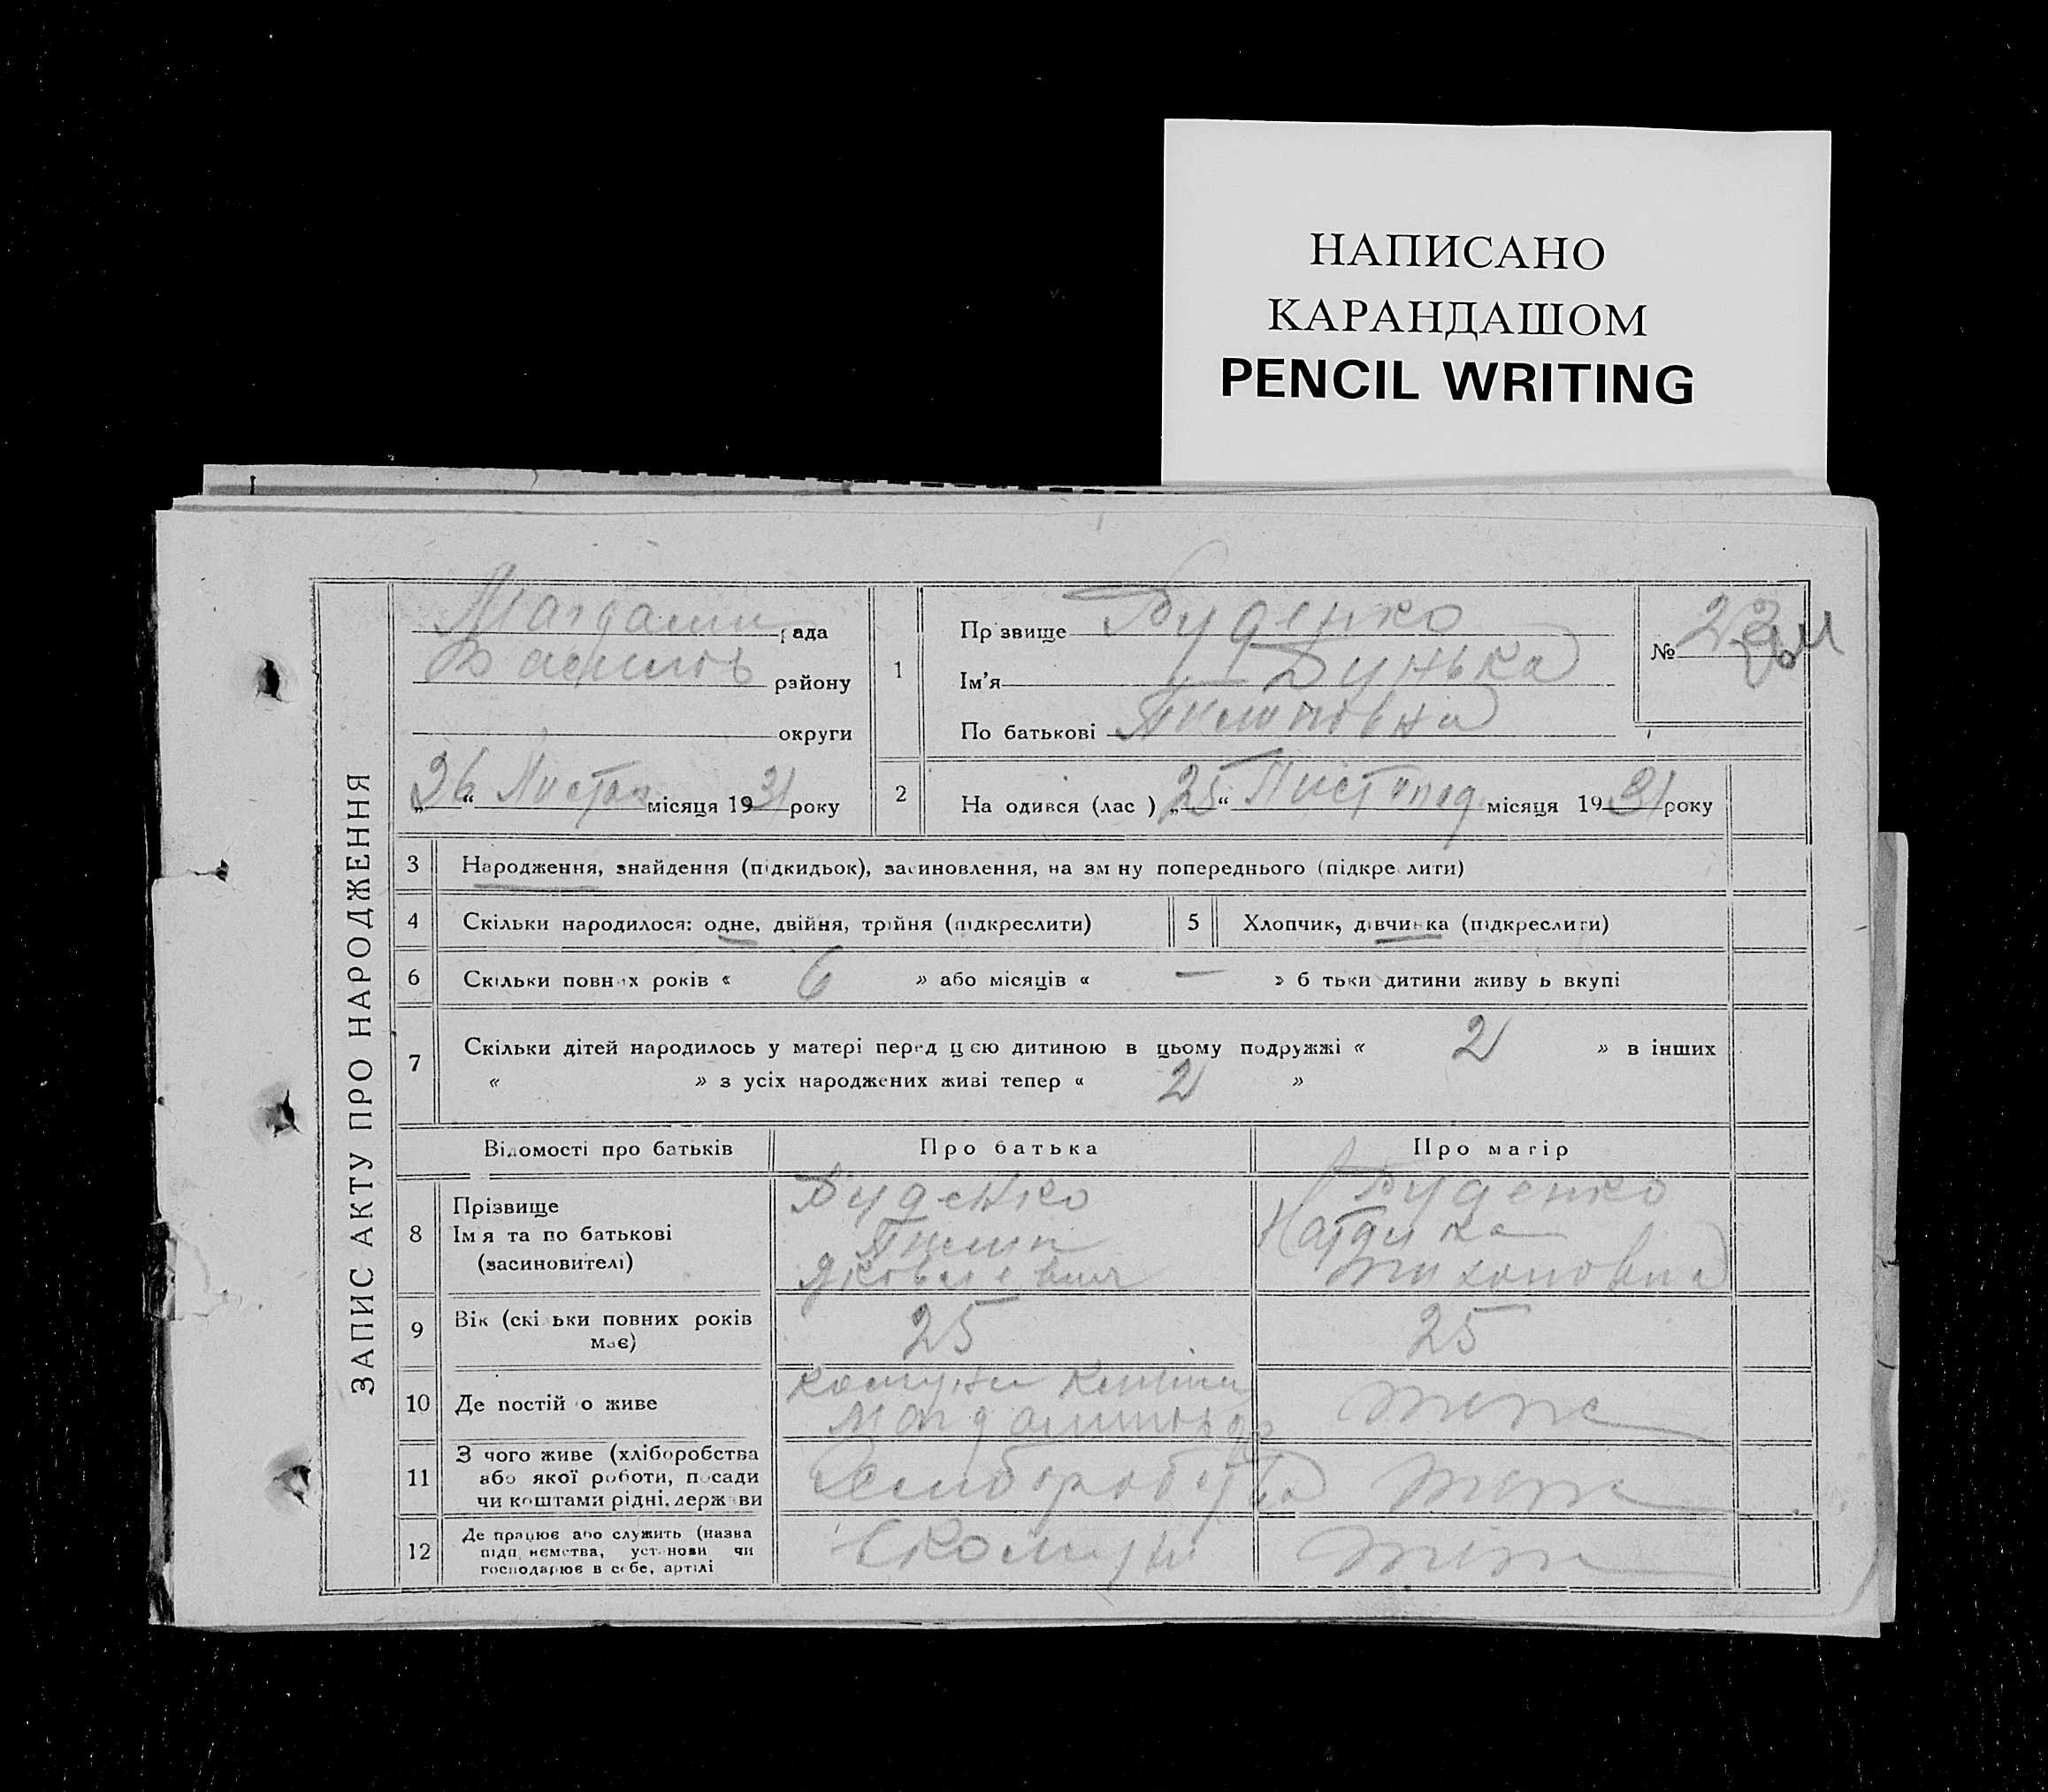 НАПИСАНО
КАРАНДАШОМ
PENCIL WRITING
ЗАПИС АКТУ ПРО НАРОДЖЕННЯ
рада
району
округи
„26“ Листоп місяця 1931 року
1
Прзвище Буденко
Ім'я Дунька
По батькові Пилиповна
№
2
На одився (лас ) „25“ Листопад місяця 1931 року
3 Народження, знайдення (підкидьок), засиновлення, на зм ну попереднього (підкре лити)
4 Скільки народилося: одне, двійня, трійня (підкреслити)
5 Хлопчик, дівчинка (підкреслити)
6 Скільки повних років « 6 » або місяців « — » б тьки дитини живу ь вкупі
7 Скільки дітей народилось у матері перед цією дитиною в цьому подружжі « 2 » в інших
« » з усіх народжених живі тепер « 2 »
Відомості про батьків
Про батька
Про матір
8 Прізвище
Ім'я та по батькові
(засиновителі)
Буденко
Пилип
Яковлевич
Буденко
Тихоновна
9 Вік (скі ьки повних років
має)
25
25
10 Де постій о живе
комуни
теж
11 З чого живе (хліборобства
або якої роботи, посади
чи коштами рідні, держави
теж
12 Де працює або служить (назва
підп иємства, установи чи
господарює в себе, артілі
в комуні
теж